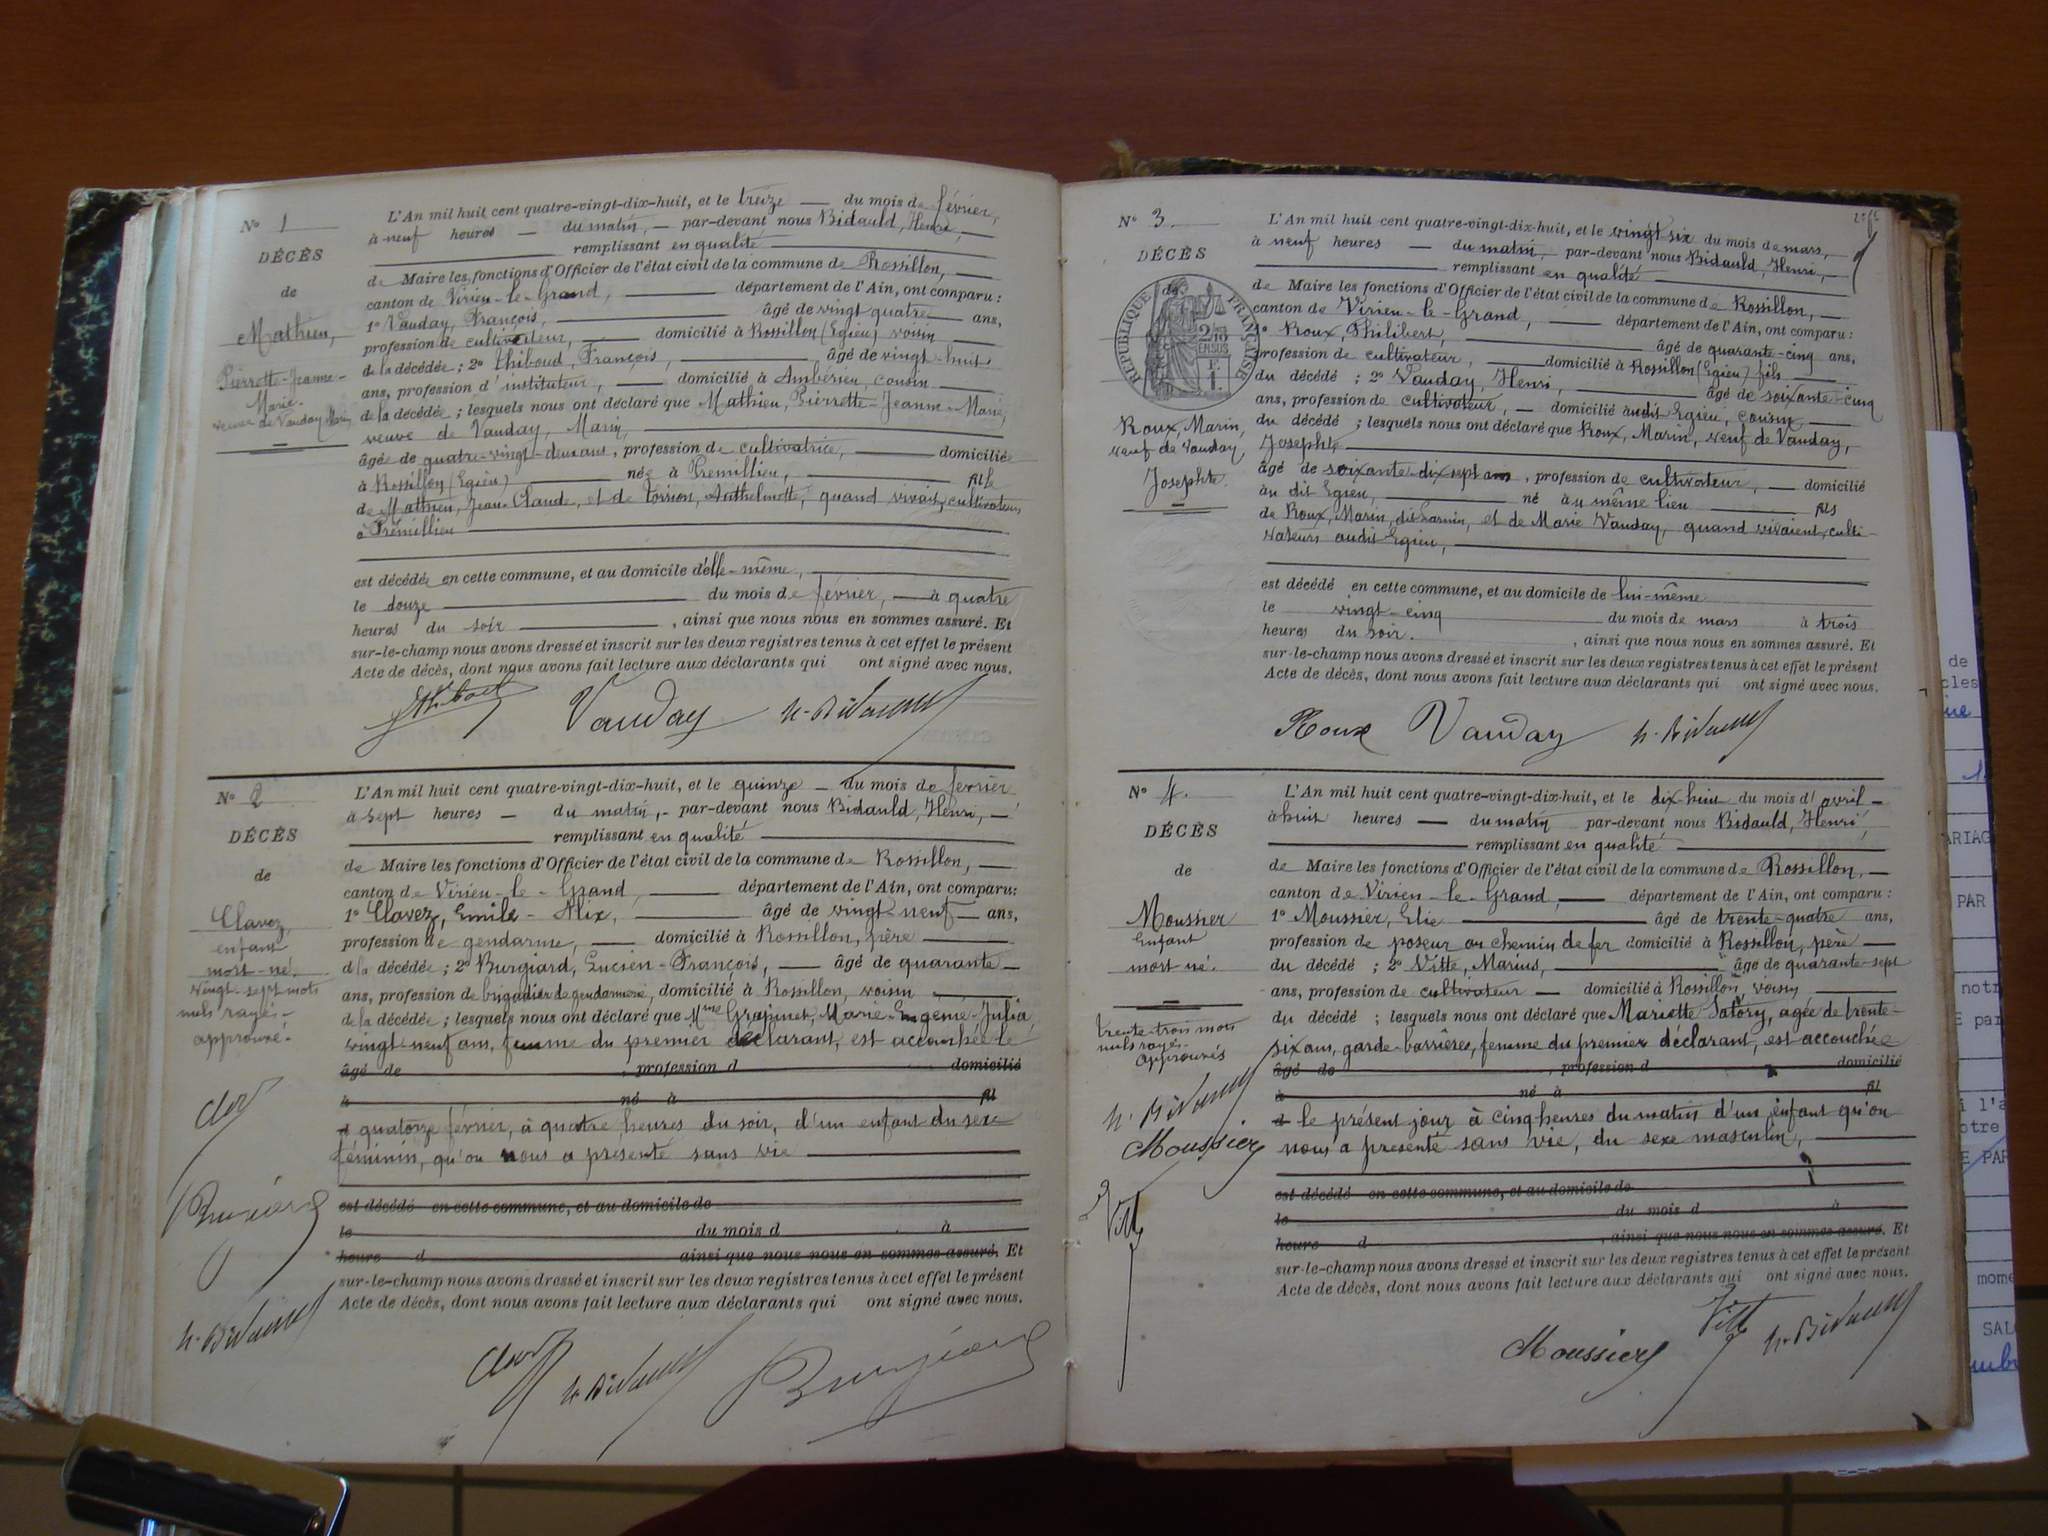 N° 1
DÉCÈS
de
Mathieu,
Pierrette-Jeanne-
Marie.
veuve de Vauday Marin
L'An mil huit cent quatre-vingt-dix-huit, et le treize du mois de février,
à neuf heures du matin, par-devant nous Bidauld, Henri,
remplissant en qualité
de Maire les fonctions d'Officier de l'état civil de la commune de Rossillon,
canton de Virieu-le-Grand, département de l'Ain, ont comparu :
1° Vauday, François, âgé de vingt quatre ans,
profession de cultivateur, domicilié à Rossillon (Egieu) voisin
de la décédée ; 2° Thiboud, François, âgé de vingt-huit
ans, profession d'instituteur, domicilié à Ambérieu, cousin
de la décédée ; lesquels nous ont déclaré que Mathieu, Pierrette-Jeanne-Marie,
veuve de Vauday, Marin,
âgée de quatre-vingt-deux ans, profession de cultivatrice, domiciliée
à Rossillon (Egieu) née à Prémillieu, fille
de Mathieu, Jean-Claude, et de Anthelmette, quand vivait, cultivateurs
à Prémillieu
est décédée en cette commune, et au domicile d'elle-même,
le douze du mois de février, à quatre
heures du soir, ainsi que nous nous en sommes assuré. Et
sur-le-champ nous avons dressé et inscrit sur les deux registres tenus à cet effet le présent
Acte de décès, dont nous avons fait lecture aux déclarants qui ont signé avec nous.
Vauday H. Bidauld
N° 2
DÉCÈS
de
Clavez,
enfant
mort-né.
vingt-sept mots
nuls rayés
approuvé.
L'An mil huit cent quatre-vingt-dix-huit, et le quinze du mois de février
à sept heures du matin, par-devant nous Bidauld, Henri,
remplissant en qualité
de Maire les fonctions d'Officier de l'état civil de la commune de Rossillon,
canton de Virieu-le-Grand, département de l'Ain, ont comparu :
1° Clavez, Emile-Alix, âgé de vingt-neuf ans,
profession de gendarme, domicilié à Rossillon, père
d la décédée ; 2° Burgiard, Lucien-François, âgé de quarante
ans, profession de brigadier de gendarmerie, domicilié à Rossillon, voisin
de la décédée ; lesquels nous ont déclaré que Mme Grapinet, Marie-Eugénie-Julia,
vingt-neuf ans, femme du premier déclarant, est accouchée le
âgé de profession d domicilié
à né à fil
d quatorze février, à quatre heures du soir, d'un enfant du sexe
féminin, qu'on nous a présenté sans vie
est décédé en cette commune, et au domicile de
le du mois d à
heure d ainsi que nous nous en sommes assuré. Et
sur-le-champ nous avons dressé et inscrit sur les deux registres tenus à cet effet le présent
Acte de décès, dont nous avons fait lecture aux déclarants qui ont signé avec nous.
H. Bidauld
H. Bidauld Burgiard
N° 3
DÉCÈS
de
RÉPUBLIQUE FRANÇAISE
Roux, Marin,
veuf de Vauday,
Josephte.
L'An mil huit cent quatre-vingt-dix-huit, et le vingt six du mois de mars,
à neuf heures du matin, par-devant nous Bidauld, Henri,
remplissant en qualité
de Maire les fonctions d'Officier de l'état civil de la commune de Rossillon,
canton de Virieu-le-Grand, département de l'Ain, ont comparu :
1° Roux, Philibert, âgé de quarante-cinq ans,
profession de cultivateur, domicilié à Rossillon (Egieu) fils
du décédé ; 2° Vauday, Henri, âgé de soixante-cinq
ans, profession de cultivateur, domicilié audit Egieu, cousin
du décédé ; lesquels nous ont déclaré que Roux, Marin, veuf de Vauday,
Josephte,
âgé de soixante-dix sept ans, profession de cultivateur, domicilié
au dit Egieu, né au même lieu fils
de Roux, Marin, dit et de Marie Vauday, quand vivaient, culti-
vateurs audit Egieu,
est décédé en cette commune, et au domicile de lui-même
le vingt-cinq du mois de mars à trois
heures du soir, ainsi que nous nous en sommes assuré. Et
sur-le-champ nous avons dressé et inscrit sur les deux registres tenus à cet effet le présent
Acte de décès, dont nous avons fait lecture aux déclarants qui ont signé avec nous.
Roux Vauday H. Bidauld
N° 4.
DÉCÈS
de
Moussier
Enfant
mort né.
trente-trois mots
nuls rayés
approuvés
H. Bidauld
Moussier
Vitte
L'An mil huit cent quatre-vingt-dix-huit, et le dix huit du mois d'avril
à huit heures du matin par-devant nous Bidauld, Henri,
remplissant en qualité
de Maire les fonctions d'Officier de l'état civil de la commune de Rossillon,
canton de Virieu-le-Grand, département de l'Ain, ont comparu :
1° Moussier, Elie âgé de trente-quatre ans,
profession de poseur au chemin de fer domicilié à Rossillon, père
du décédé ; 2° Vitte, Marius, âgé de quarante-sept
ans, profession de cultivateur domicilié à Rossillon, voisin
du décédé ; lesquels nous ont déclaré que Mariette Satory, agée de trente-
six ans, garde-barrières, femme du premier déclarant, est accouchée
âgé de , profession d domicilié
à né à fil
d le présent jour à cinq heures du matin d'un enfant qu'on
nous a présenté sans vie, du sexe masculin,
est décédé en cette commune, et au domicile de
le du mois d à
heure d , ainsi que nous nous en sommes assuré. Et
sur-le-champ nous avons dressé et inscrit sur les deux registres tenus à cet effet le présent
Acte de décès, dont nous avons fait lecture aux déclarants qui ont signé avec nous.
Moussier Vitte H. Bidauld